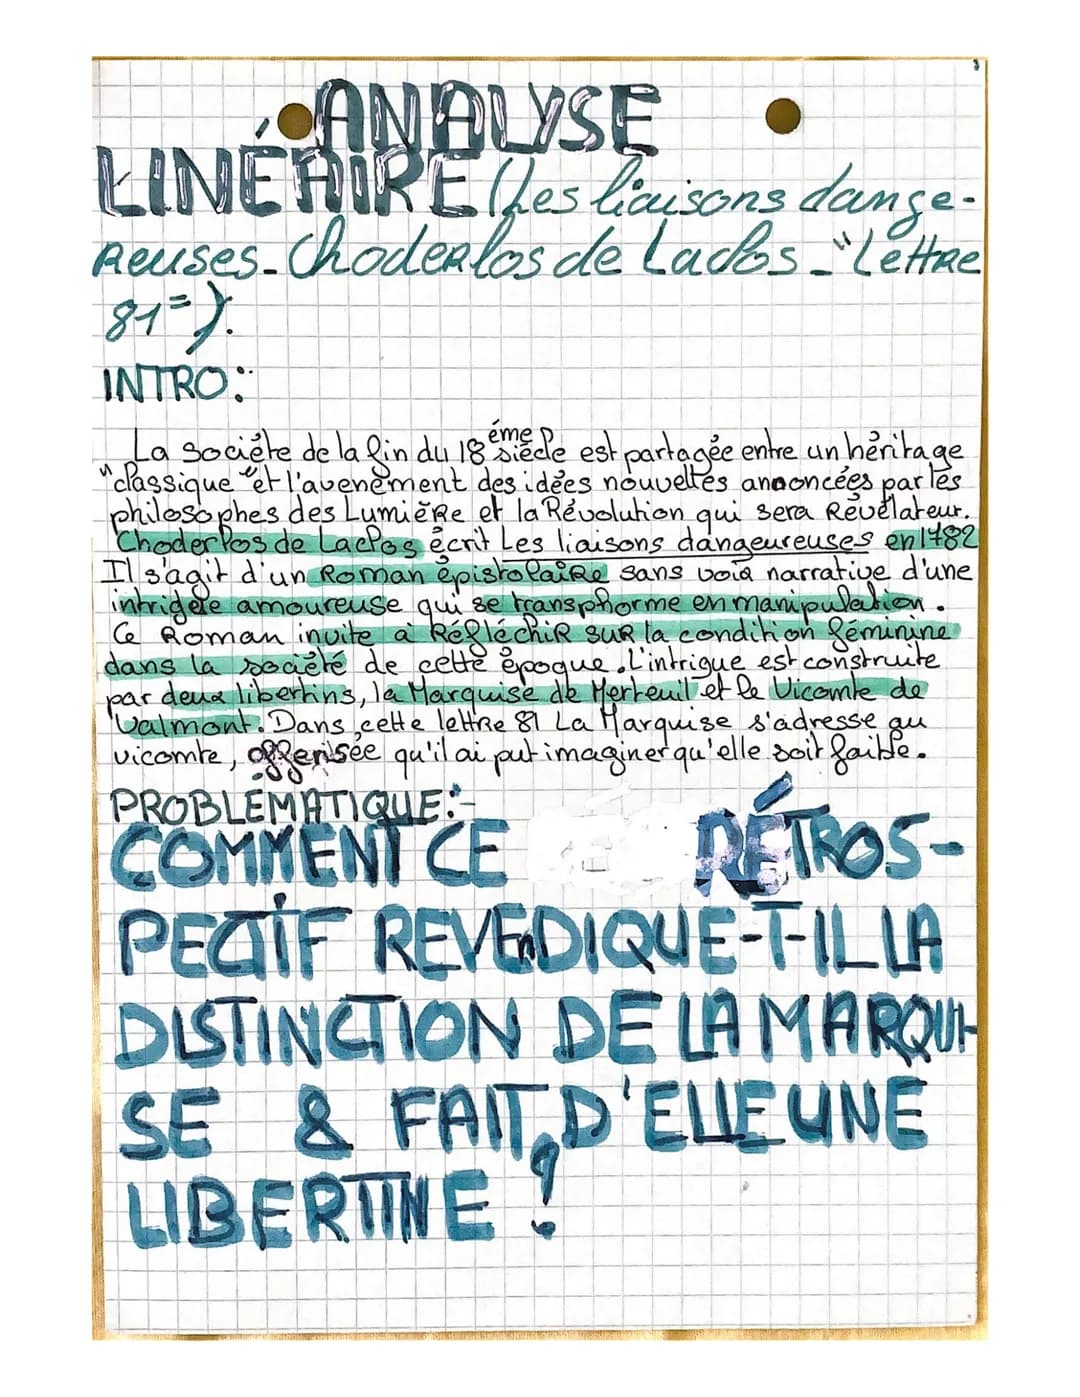 ANALYSE
LINÉAIRE (Les liaisons dange-
reuses - Choderlos de Laclos - "Lettre
81").
INTRO:
La société de la fin du 18ème siècle est partagée entre un héritage
"classique" et l'avenement des idées nouvelles annoncées par les
philosophes des Lumière et la Révolution qui sera Révélateur.
Choderlos de Laclos écrit Les liaisons dangeureuses en 1782
Il s'agit d'un Roman épistolaire sans voix narrative d'une
intrigue amoureuse qui se transphorme en manipulation.
Ce Roman invite à Réfléchir sur la condition féminine
dans la société de cette époque. L'intrigue est construite
par deux libertins, la Marquise de Merteuil et le Vicomte de
Valmont. Dans cette lettre 81 La Marquise s'adresse au
vicomte, offensée qu'il ai put imaginer qu'elle soit faible.
PROBLÉMATIQUE:
COMMENT CE RÉTROS-
PECTIF REVENDIQUE-T-IL LA
DISTINCTION DE LA MARQUI-
SE & FAIT D'ELLE UNE
LIBERTINE ?